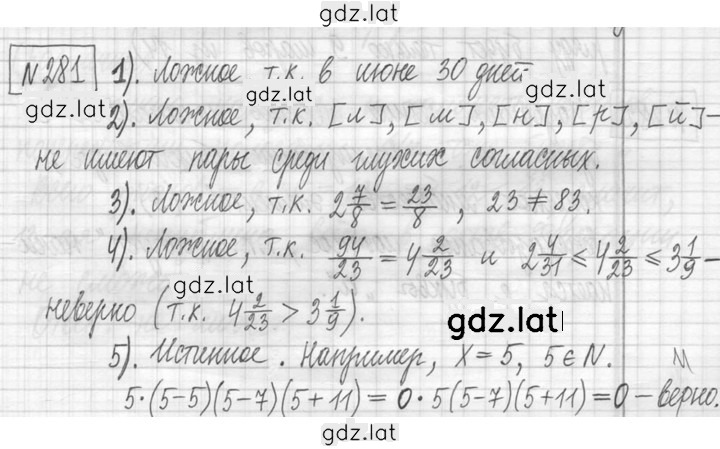 gdz.lat
№281 1). Ложное т.к. в июне 30 дней
gdz.lat gdz.lat
2). Ложное, т.к. [л], [м], [н], [р], [й] –
не имеют пары среди глухих согласных.
3). Ложное, т.к. 2 7/8 = 23/8, 23 ≠ 83.
4). Ложное, т.к. 94/23 = 4 2/23 и 2 4/31 ≤ 4 2/23 ≤ 3 1/9 –
gdz.lat
неверно (т.к. 4 2/23 > 3 1/9).
gdz.lat
5). Истинное. Например, x = 5, 5 ∈ N.
5·(5–5)(5–7)(5+11) = 0·5(5–7)(5+11) = 0 – верно.
gdz.lat